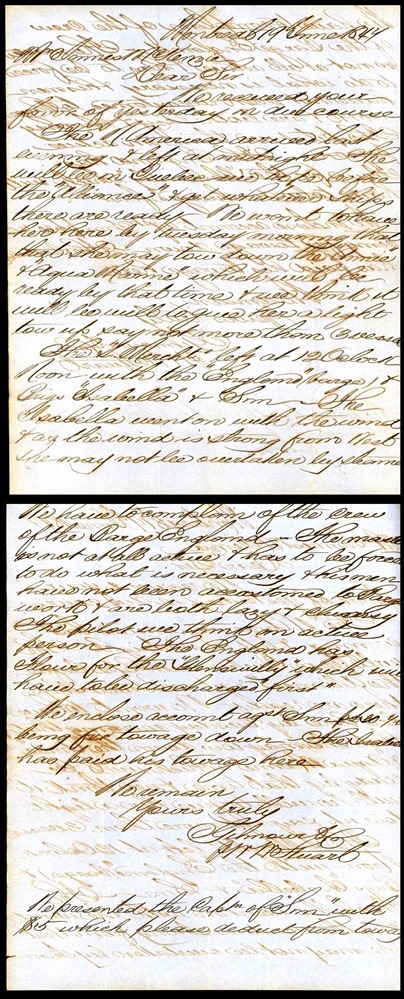 Montreal 19 June 1844
Mr James McKenzie
Dear Sir
We received your
favor of yesterday in due course
The "America" arrived last
evening & left at midnight She
will tow in Quebec
the
there are ready We want to have
her here by tuesday morning
that she may tow down the
& Agua Marine" which will be
ready by that time & we think it
will be well to give her a light
tow up say not more than 3 vessels
The St "Mercht" left at 12 OClock
Noon with the "England" (barge) &
Brigs "Isabella" & Son The
Isabella went on with the wind
& as the wind is strong from West
she may not be overtaken by steamer
We have to complain of the crew
of the Barge England – The master
is not at all active & has to be forced
to do what is necessary & his men
have not been accustomed to Barge
work & are both lazy & clumsy
The pilot we think an active
person – The England has
Staves for the which will
have to be discharged first"
We enclose account agst Son
being for towage down – The Isabella
has paid his towage here
We remain
Yours truly
Gilmour & Co
Stuart
We presented the Captn of "Son" with
$5 which please deduct from towage